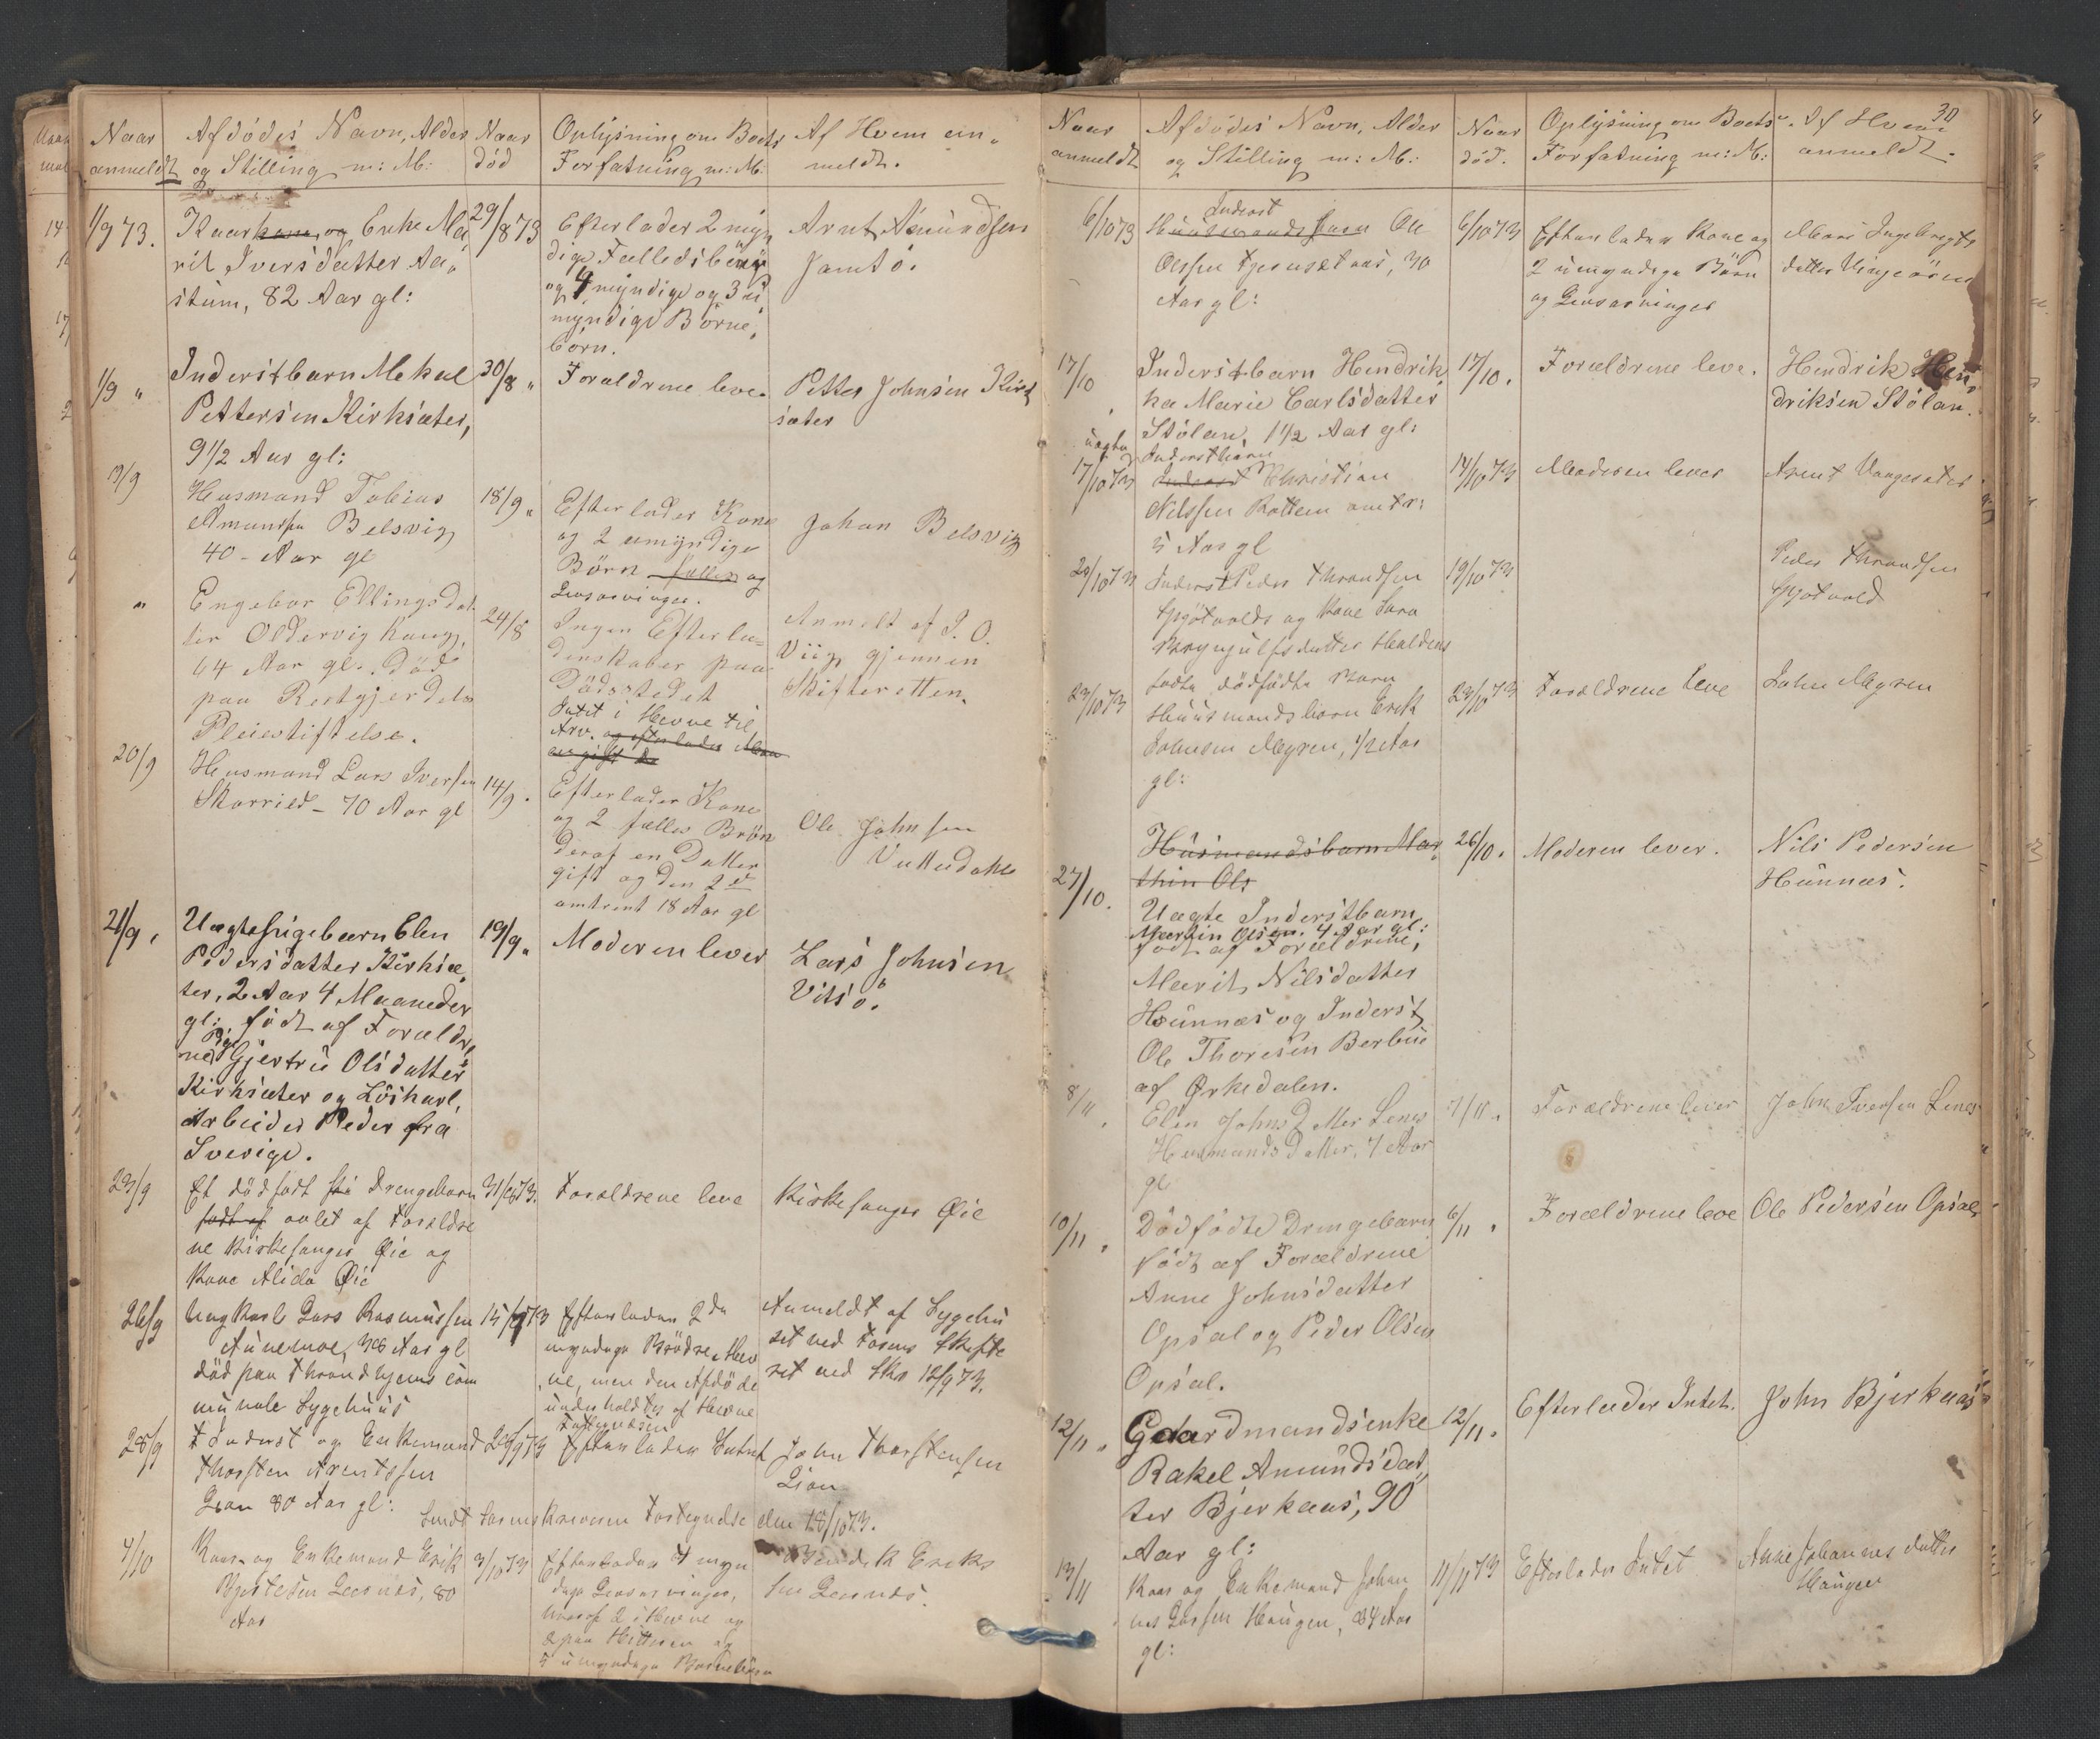 Naar
anmeldt
Afdödes Navn, Alder
og Stilling m: M:
Naar
död
Oplysning om Boets
Forfatning m: M:
Af Hvem an-
meldt.
1/9 73.
Kaarkone og Enke Ma-
rit Iversdatter Aa-
stum, 82 Aar gl:
29/8 73
Efterlader 2 myn
dige Fælledsbörn
og 4 myndige og 3 u-
myndige Börne-
börn.
Arnt Amundsen
Jamtö.
1/9 "
Inderstbarn Mekal
Pettersen Kirksæter,
9 1/2 Aar gl:
30/8 "
Forældrene leve
Petter Johnsen Kirk
sæter
19/9
Husmand Tobias
Amundsen Belsvig
40 - Aar gl
18/9 "
Efterlader Kone
og 2 umyndige
Börn fælles og
Livsarvinger.
Johan Belsvig
"
Engebor Ellingsdat
ter Oldervig
64 Aar gl. Död
paa Reitgjerdets
Pleiestiftelse.
24/8
Ingen Efterla-
denskaber paa
Dödsstedet
Intet i Hevne til
Arv. og efterlader
Anmeldt af J. O.
Viig gjennem
Skifteretten.
20/9
Husmand Lars Iversen
Skarrild - 70 Aar gl
14/9.
Efterlader Kone
og 2 fælles Brön
deraf en Datter
gift og den 2de
omtrent 18 Aar gl
Ole Johnsen
Vuttudahl
21/9,
Uægte Pigebarn Elen
Pedersdatter Kirksæ-
ter, 2 Aar 4 Maaneder
gl:, födt af Foræld-
rene Pige Gjertru Olsdatter
Kirksæter og Löskarl,
Arbeider Peder fra
Sverige.
19/9 "
Moderen lever
Lars Johnsen
Vitsö.
23/9
Et dödfödt Drengebarn
födt af avlet af Forældre
ne Kirkesanger Øie og
Kone Alida Øie
31/8 73.
Forældrene leve
Kirkesanger Øie
26/9
Ungkarl Lars Rasmussen
Aunemoe, 38 Aar gl
död paa Throndhjems com
munale Sygehuus
15/9 73
Efterlader 2de
myndige Brödre i Hev
ne, men den Afdöde
underholdtes af Hevne
Fattigvæsen
Anmeldt af Sygehu
set ved Fosens Skifte
ret ved Skr 18/9 73.
28/9
Inderst og Enkemand
Thorsten Arentssen
Lian 80 Aar gl:
28/9 73
Efterlader Intet
John Thorstensen
Lian
Sendt Sorenskriveren Fortegnelse den 18/10 73.
4/10
Kaar- og Enkemand Erik
Bjertesen Leernes, 80
Aar
3/10 73
Efterlader 4 myn
dige Livsarvinger,
hvoraf 2 i Hevne og
2 paa Hitteren og
5 umyndige Börnebörn
Bendik Eriks
sen Leernes.
30
Naar
anmeldt
Afdödes Navn, Alder
og Stilling m: M.:
Naar
död.
Oplysning om Boets
Forfatning m: M:
Af Hvem
anmeldt.
6/10 73
Inderst
Huusmandssön Ole
Olssen Fjerusetaas, 30
Aar gl:
6/10 73
Efterlader Kone og
2 umyndige Börn
og Livsarvinger
Mari Ingebrigts
datter Vingeören
17/10
Inderstbarn Hendrik-
ka Marie Carlsdatter
Stölan, 1 1/2 Aar gl:
17/10.
Forældrene leve.
Hendrik Hen-
driksen Stölan.
uægte
17/10 73
Inderstbarn
Inderst Christian
Nilssen Rottem omtr:
5 Aar gl
14/10 73
Moderen lever
Arent Vangesæter
20/10 73
Inderst Peder Throndsen
Gjötvolds og Kone Sara
Brynjulfsdatter Haldens
fødte dödfödte Barn
19/10 73
Peder Throndsen
Gjötvold
23/10 73
Huusmandsbarn Erik
Johnsen Myren, 1/2 Aar
gl:
23/10 73
Forældrene leve
John Myren
27/10.
Husmandsbarn Mar-
thin Ols
Uægte Inderstbarn
Martin Olsen. 4 Aar gl:
födt af Forældrene,
Marit Nilsdatter
Hunnæs og Inderst
Ole Thoresen Berbue
af Ørkedalen.
26/10.
Moderen lever.
Nils Pedersen
Hunnæs.
8/11
Elen JohnsDatter Lenes
HusmandsDatter, 7 Aar
gl
7/11 "
Forældrene lever
John Iversen Lenes
10/11 "
Dödfödte Drengebarn
födt af Forældrene
Anne Johnsdatter
Opsal og Peder Olsen
Opsal.
6/11 "
Forældrene leve
Ole Pedersen Opsal
12/11 "
Gaardmandsenke
Rakel Amundsdat-
ter Bjerkaas, 90
Aar gl:
12/11 "
Efterlader Intet.
John Bjerkaas
13/11
Kaar og Enkemand Johan
nes Larsen Haugen, 84 Aar
gl:
11/11 73
Efterlader Intet
Anne Johannesdatter
Haugen